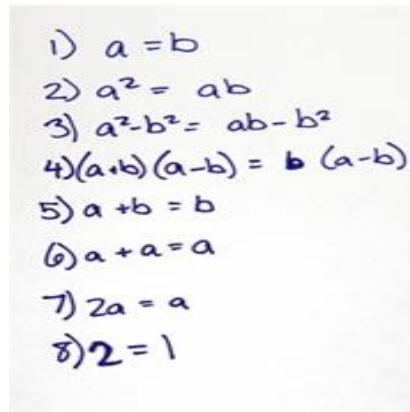 1) a = b
2) a² = ab
3) a²-b² = ab-b²
4)(a+b)(a-b) = b (a-b)
5) a +b = b
6) a + a = a
7) 2a = a
8) 2 = 1